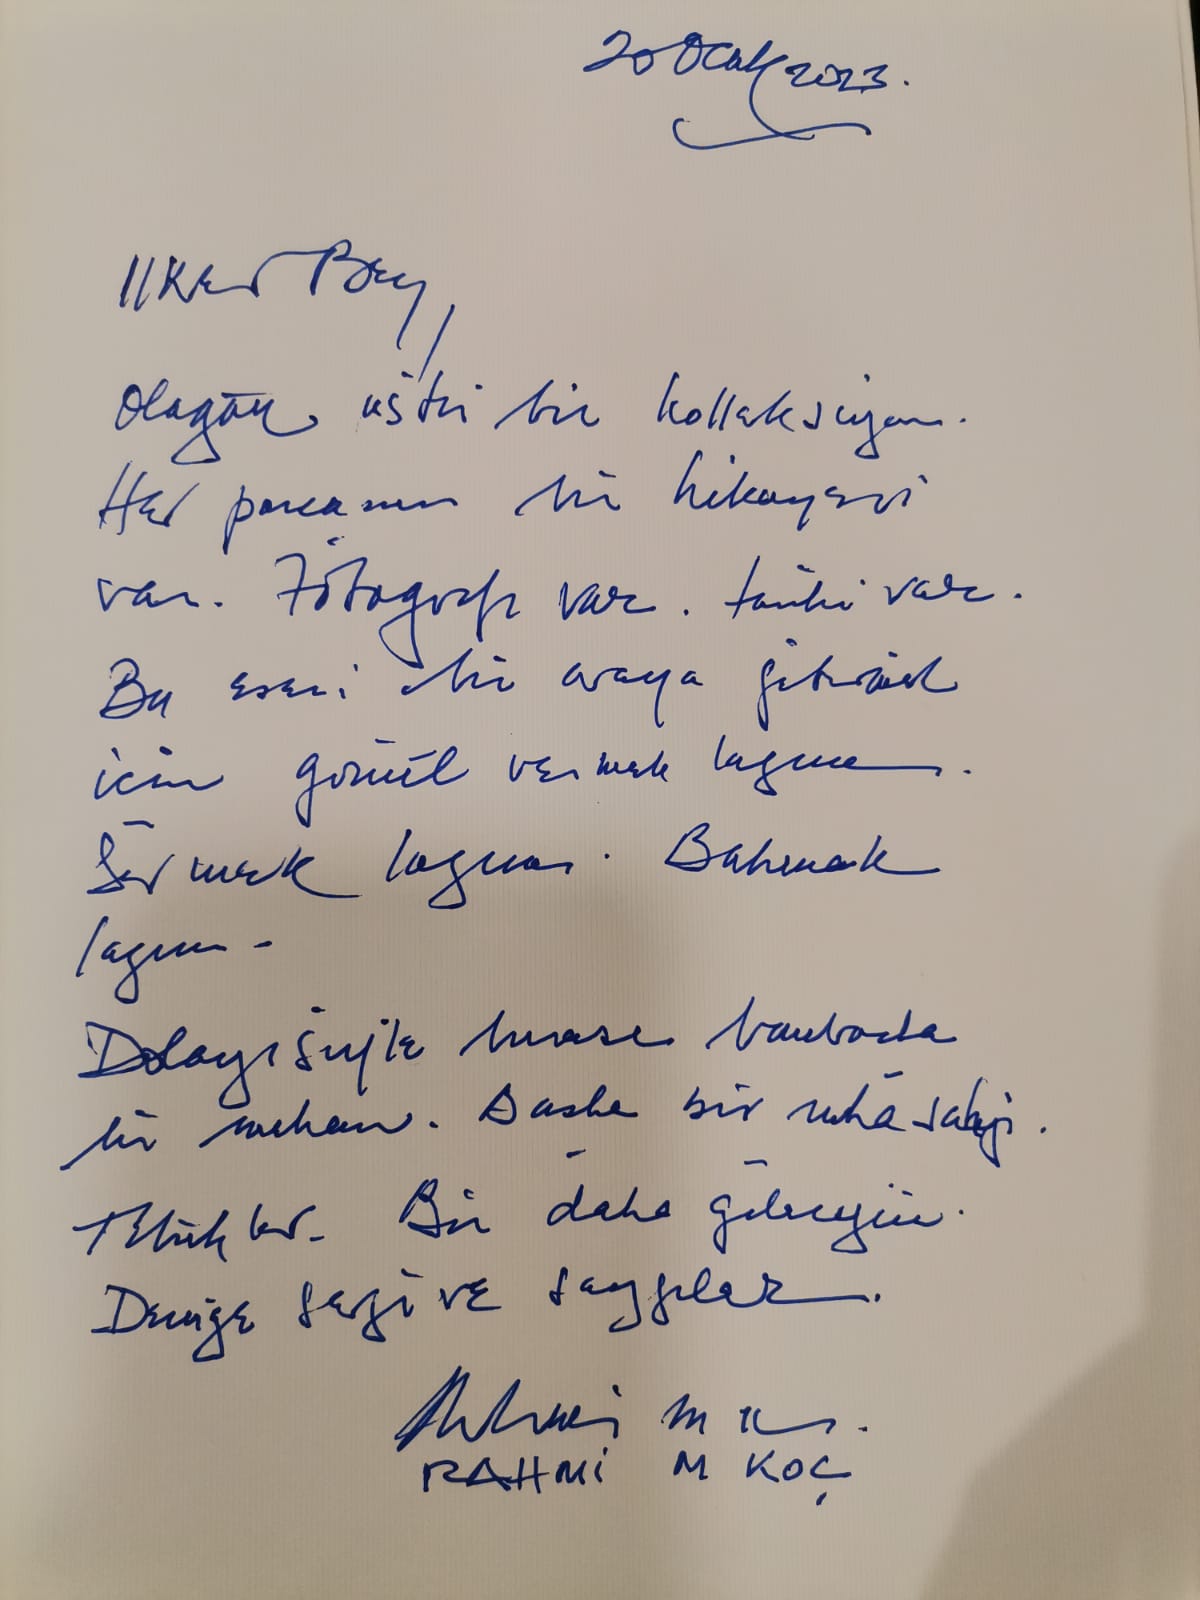 20 Ocak 2023.
İlker Bey,
Olağan üstü bir kolleksiyon.
Her parçanın bir hikayesi
var. Fotoğrafı var. tarihi var.
Bu eseri bir araya getirmek
için gönül vermek lazım.
Sevmek lazım. Bakmak
lazım.
Dolayısıyle burası bambaşka
bir mekan. Başka bir ruha sahip.
Tebrikler. Bir daha geleceğim.
Denize sevgi ve saygılar.
Rahmi M Koç.
RAHMİ M KOÇ